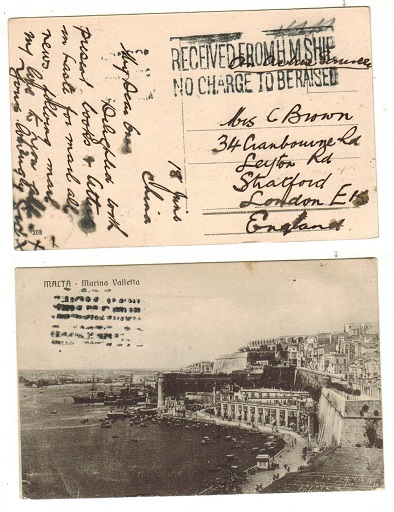 RECEIVED FROM H.M. SHIP
NO CHARGE TO BE RAISED
On Active Service
Mrs C Brown
34 Cranbourne Rd
Leyton Rd
Stratford
London E15
England
My Dear
with
present books & letters
in haste for mail all
news following mail
my love to you all
18
China
208
MALTA - Marina Valletta